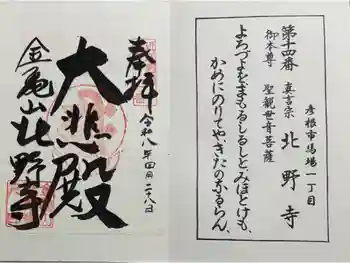 彦根市馬場一丁目
第十四番 真言宗 北野寺
御本尊 聖観世音菩薩
よろづよをまもるしるしとみほとけも、
かめにのりてやきたのなるらん、
奉拝 令和八年四月二十八日
大悲殿
金亀山北野寺